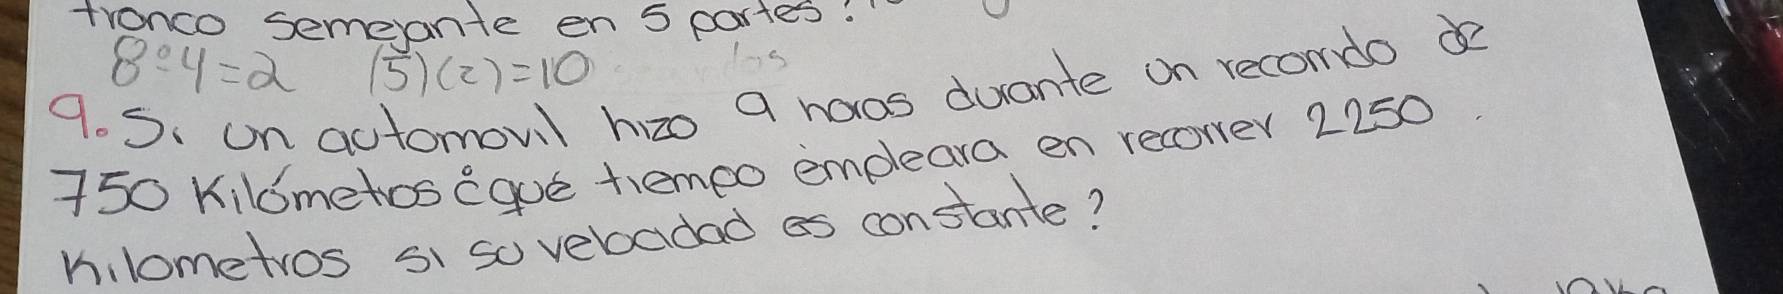 tronco semejante en 5 partes?
8÷4=2 (5)(2)=10
9. Si un automovil hizo 9 horas durante un recorrido de
750 Kilómetros ¿qué tiempo empleara en recorrer 2250
Kilometros si su velocidad es constante?